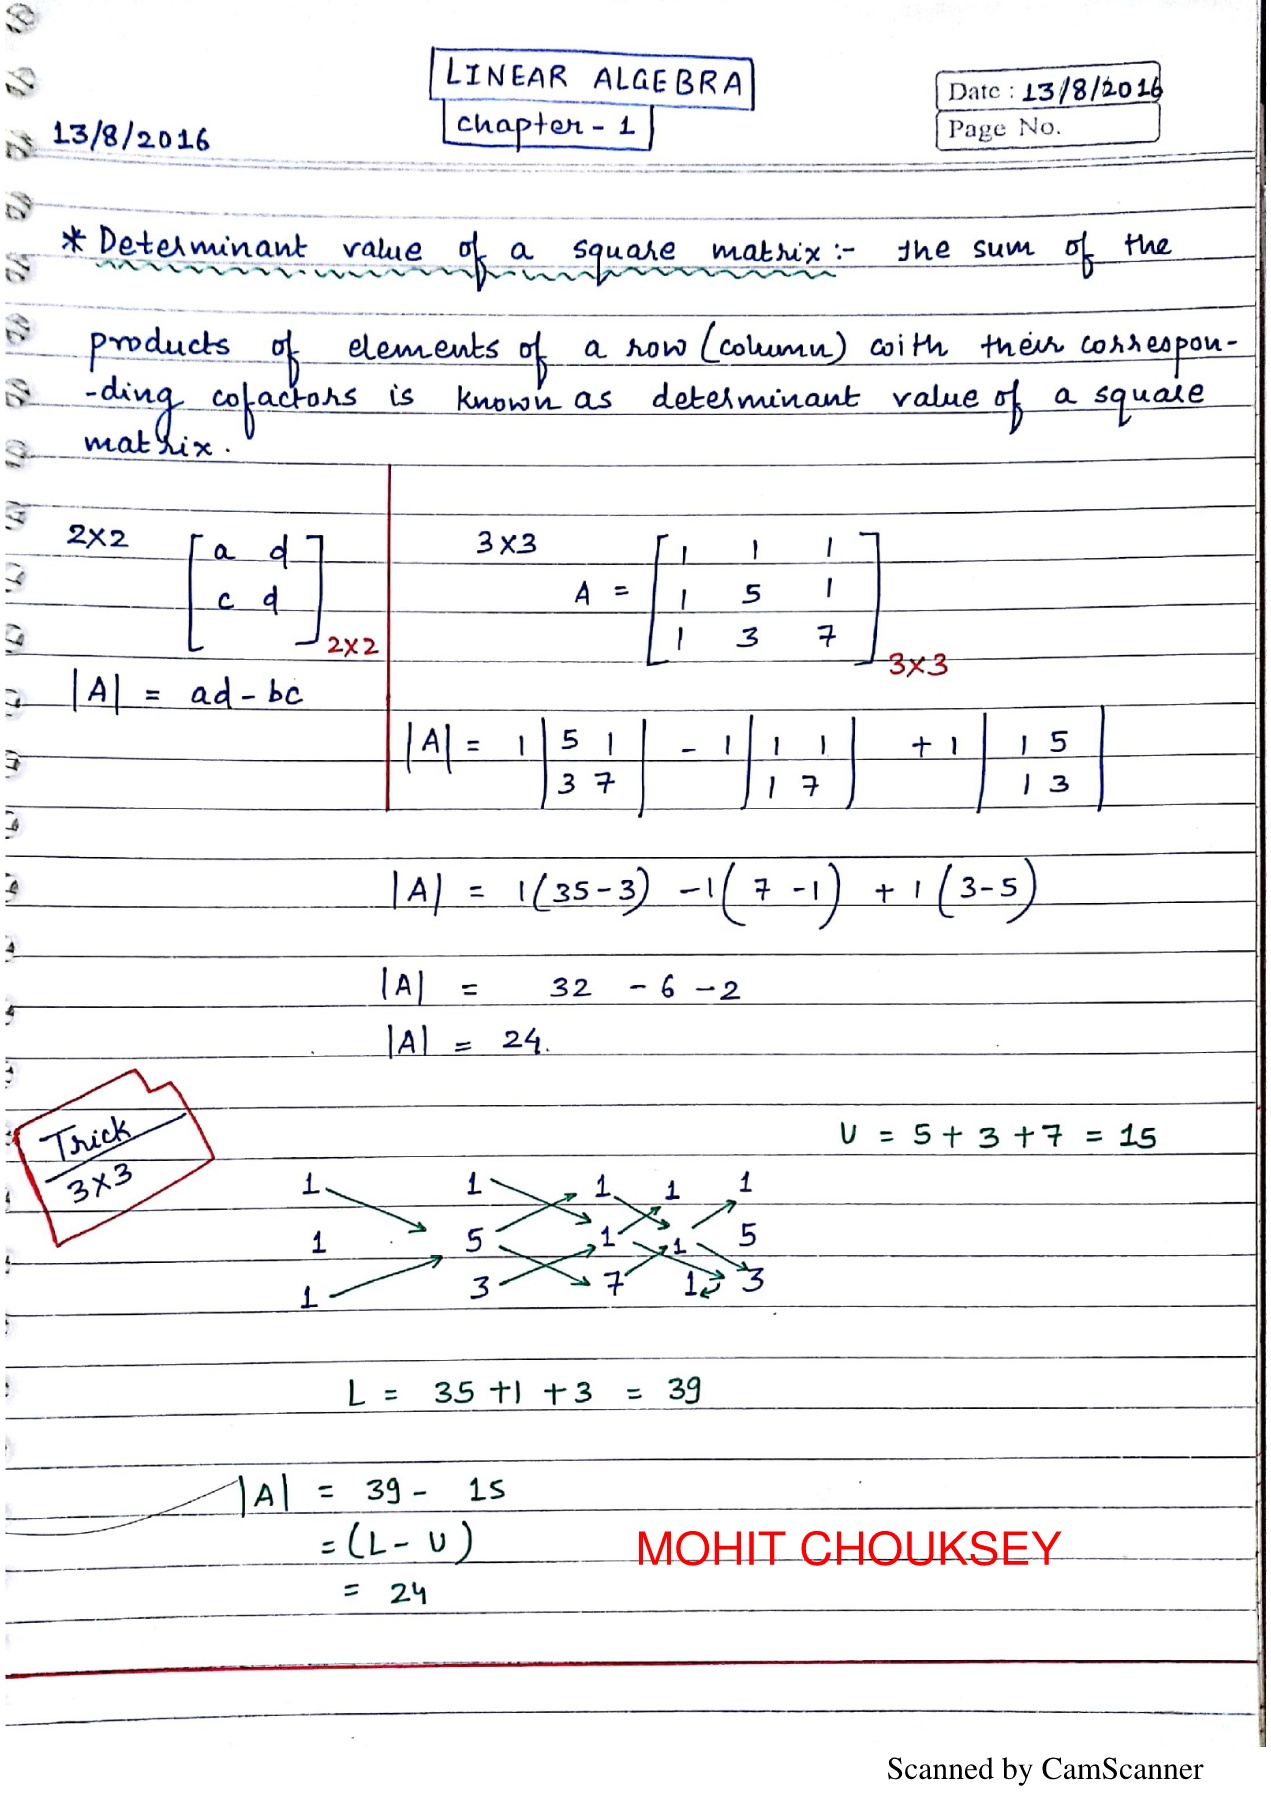 LINEAR ALGEBRA
chapter - 1
Date : 13/8/2016
Page No.
13/8/2016
* Determinant value of a square matrix :- the sum of the
products of elements of a row (column) with their correspon-
-ding cofactors is known as determinant value of a square
matrix.
2×2
[ a d
c d ] 2×2
|A| = ad - bc
3×3
A = [ 1 1 1
1 5 1
1 3 7 ] 3×3
|A| = 1 | 5 1 | - 1 | 1 1 | + 1 | 1 5 |
3 7 1 7 1 3
|A| = 1(35-3) -1(7-1) + 1(3-5)
|A| = 32 - 6 - 2
|A| = 24.
Trick
3×3
U = 5 + 3 + 7 = 15
1 1 1 1 1
1 5 1 1 5
1 3 7 1 3
L = 35 +1 + 3 = 39
|A| = 39 - 15
= (L - U)
= 24
MOHIT CHOUKSEY
Scanned by CamScanner